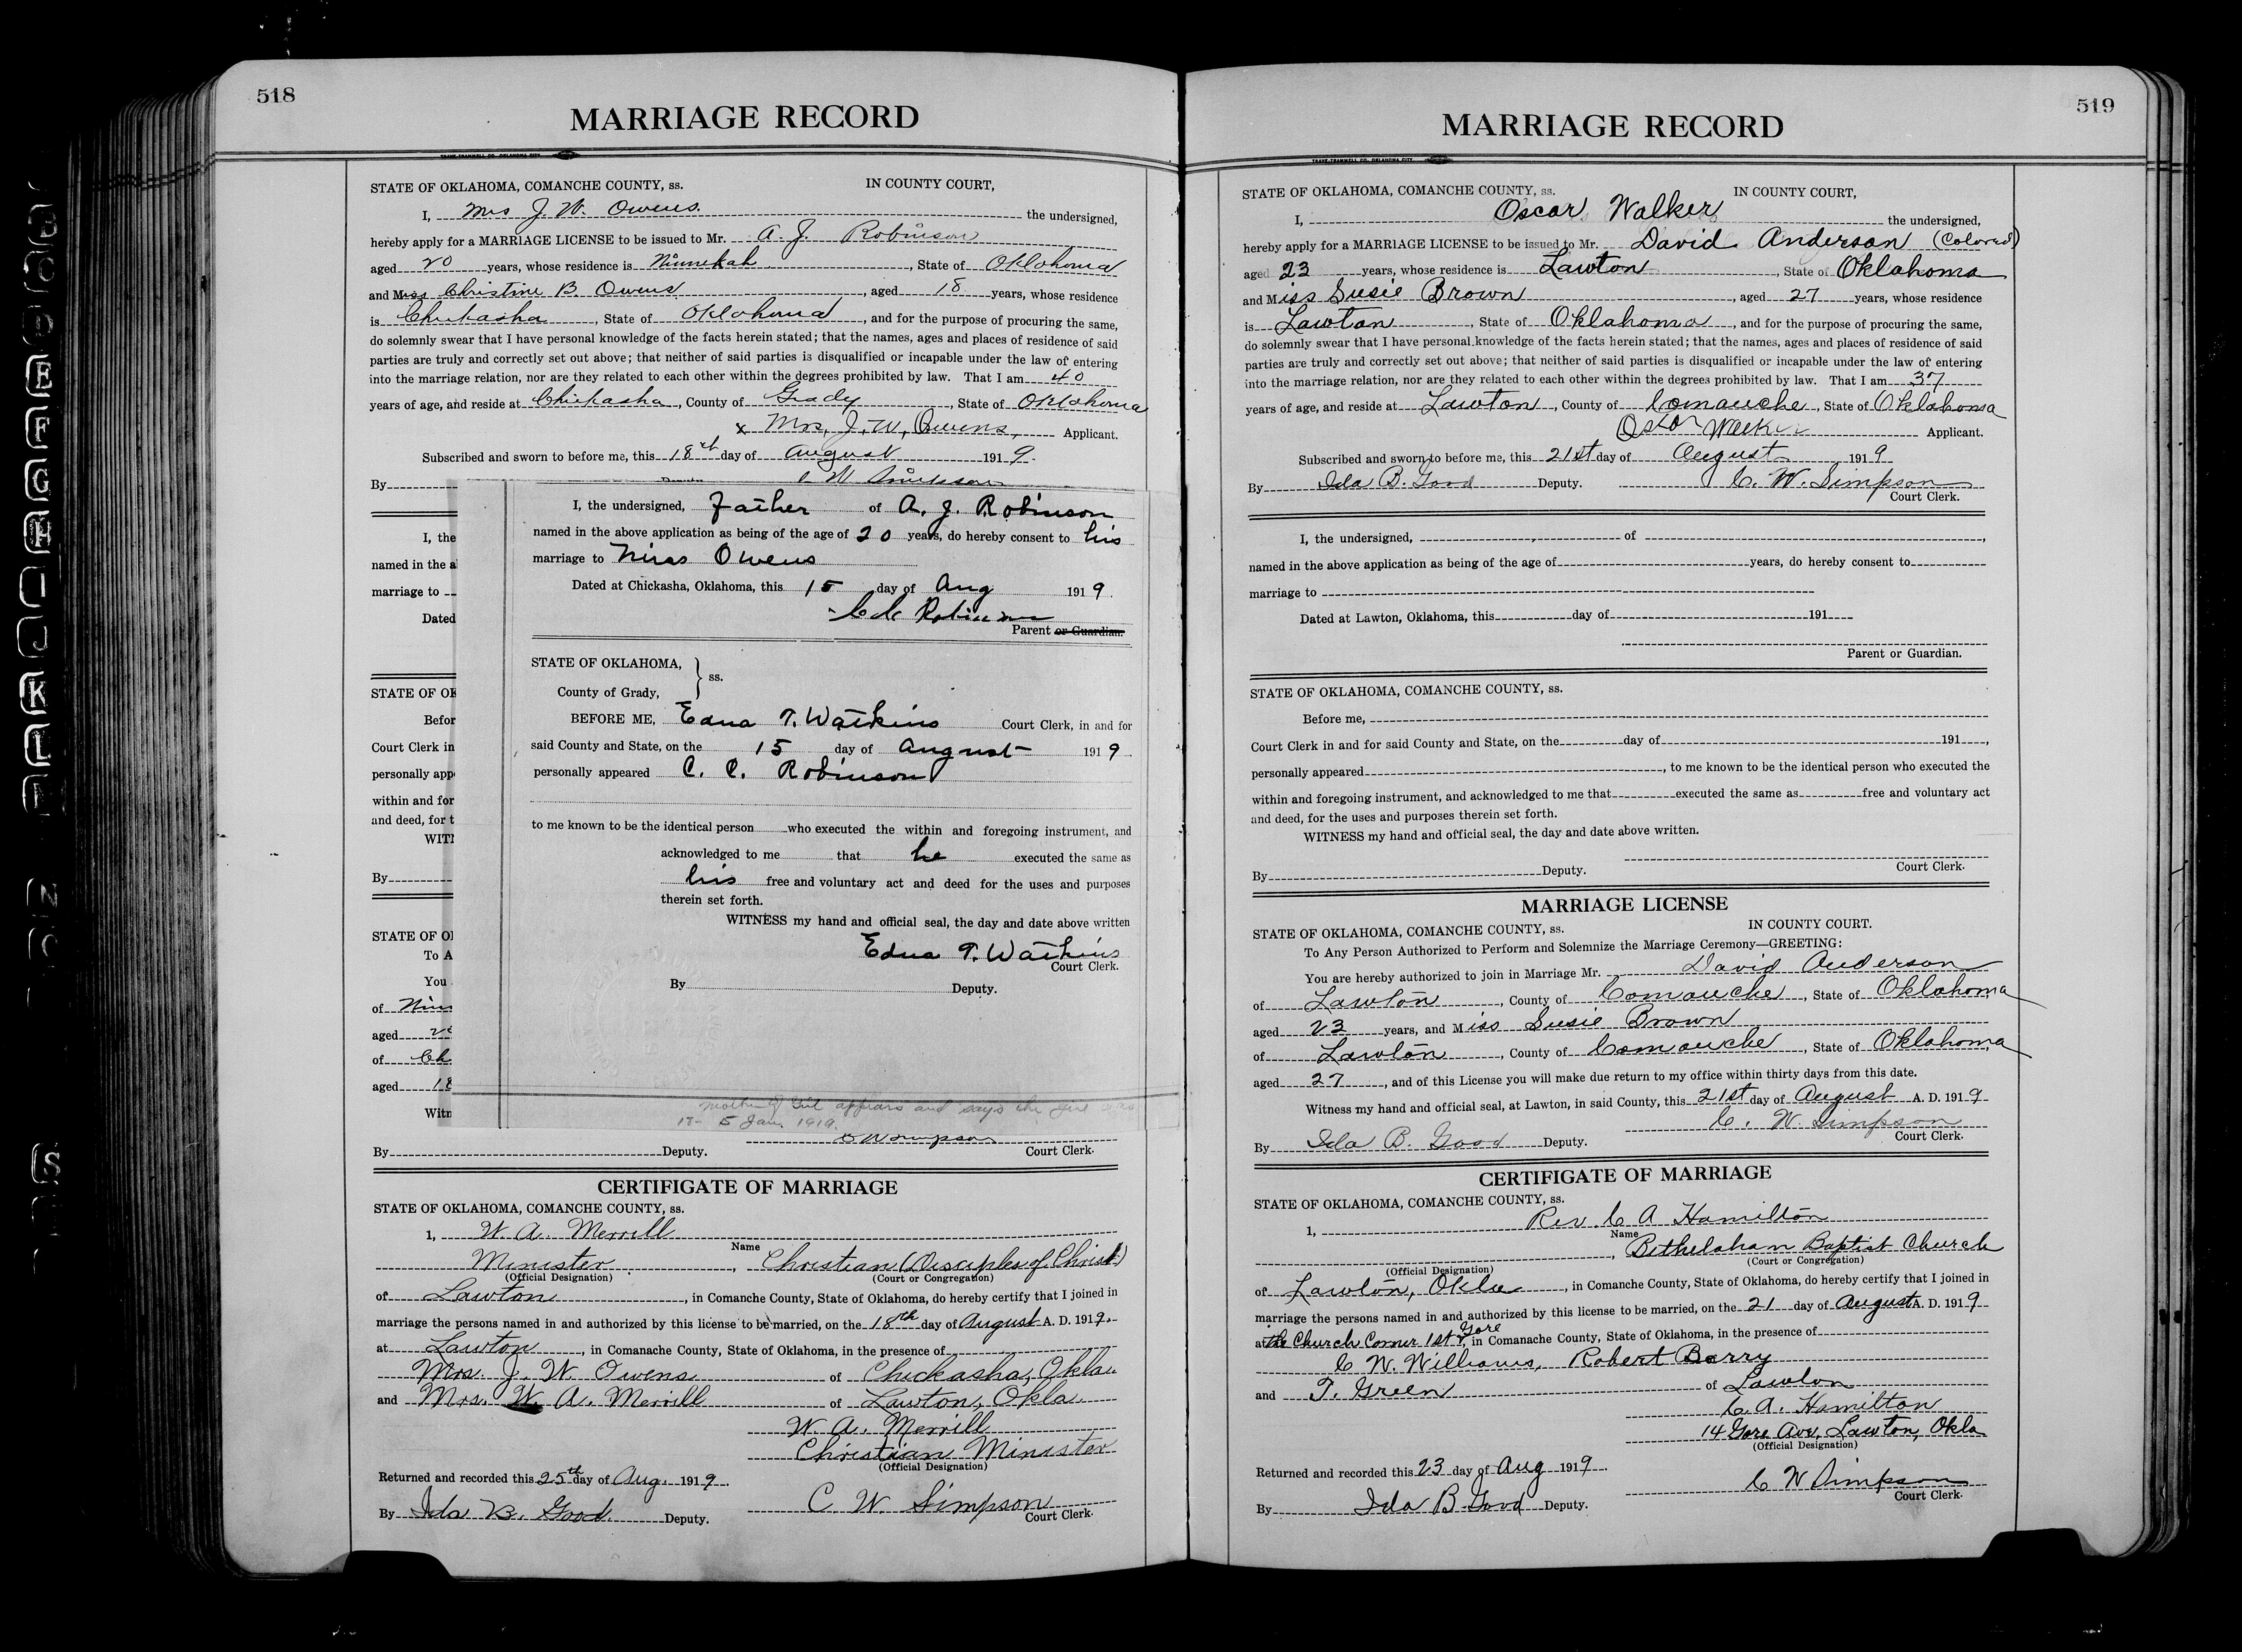 518
MARRIAGE RECORD
TRAVE-TRAMMELL CO. OKLAHOMA CITY
STATE OF OKLAHOMA, COMANCHE COUNTY, ss. IN COUNTY COURT,
I, Mrs J. W. Owens. the undersigned,
hereby apply for a MARRIAGE LICENSE to be issued to Mr. A. J. Robinson
aged 20 years, whose residence is Ninnekah, State of Oklahoma
and Miss Christine B. Owens, aged 18 years, whose residence
is Chickasha, State of Oklahoma, and for the purpose of procuring the same,
do solemnly swear that I have personal knowledge of the facts herein stated; that the names, ages and places of residence of said
parties are truly and correctly set out above; that neither of said parties is disqualified or incapable under the law of entering
into the marriage relation, nor are they related to each other within the degrees prohibited by law. That I am 40
years of age, and reside at Chickasha, County of Grady, State of Oklahoma
x Mrs. J. W. Owens, Applicant.
Subscribed and sworn to before me, this 18th day of August 1919.
By
I, the undersigned, Father of A. J. Robinson
named in the above application as being of the age of 20 years, do hereby consent to his
marriage to Miss Owens
Dated at Chickasha, Oklahoma, this 15 day of Aug 1919.
C. C. Robinson
Parent or Guardian.
STATE OF OKLAHOMA, } ss.
County of Grady,
BEFORE ME, Edna T. Watkins Court Clerk, in and for
said County and State, on the 15 day of August 1919
personally appeared C. C. Robinson
to me known to be the identical person who executed the within and foregoing instrument, and
acknowledged to me that he executed the same as
his free and voluntary act and deed for the uses and purposes
therein set forth.
WITNESS my hand and official seal, the day and date above written
Edna T. Watkins
Court Clerk.
By Deputy.
mother of Girl appears and says the girl was
17- 5 Jan, 1919.
I, the
named in the a
marriage to
Dated
STATE OF OK
Befor
Court Clerk in
personally app
within and for
and deed, for t
WITN
By
STATE OF O
To A
You
of Ninn
aged 20
of Ch
aged 18
Witn
C W Simpson
By Deputy. Court Clerk.
CERTIFICATE OF MARRIAGE
STATE OF OKLAHOMA, COMANCHE COUNTY, ss.
1, W. A. Merrill
Name
Minister, Christian (Disciples of Christ)
(Official Designation) (Court or Congregation)
of Lawton, in Comanche County, State of Oklahoma, do hereby certify that I joined in
marriage the persons named in and authorized by this license to be married, on the 18th day of August A. D. 1919.
at Lawton, in Comanche County, State of Oklahoma, in the presence of
Mrs. J. W. Owens of Chickasha, Okla.
and Mrs. W. A. Merrill of Lawton, Okla.
W. A. Merrill
Christian Minister
(Official Designation)
Returned and recorded this 25th day of Aug. 1919.
By Ida B. Good Deputy. C. W. Simpson
Court Clerk.
519
MARRIAGE RECORD
TRAVE-TRAMMELL CO. OKLAHOMA CITY
STATE OF OKLAHOMA, COMANCHE COUNTY, ss. IN COUNTY COURT,
I, Oscar Walker the undersigned,
hereby apply for a MARRIAGE LICENSE to be issued to Mr. David Anderson (Colored)
aged 23 years, whose residence is Lawton, State of Oklahoma
and Miss Susie Brown, aged 27 years, whose residence
is Lawton, State of Oklahoma, and for the purpose of procuring the same,
do solemnly swear that I have personal knowledge of the facts herein stated; that the names, ages and places of residence of said
parties are truly and correctly set out above; that neither of said parties is disqualified or incapable under the law of entering
into the marriage relation, nor are they related to each other within the degrees prohibited by law. That I am 37
years of age, and reside at Lawton, County of Comanche, State of Oklahoma
Oscar Walker Applicant.
Subscribed and sworn to before me, this 21st day of August 1919
By Ida B. Good Deputy. C. W. Simpson
Court Clerk.
I, the undersigned, of ,
named in the above application as being of the age of years, do hereby consent to
marriage to
Dated at Lawton, Oklahoma, this day of 191
Parent or Guardian.
STATE OF OKLAHOMA, COMANCHE COUNTY, ss.
Before me,
Court Clerk in and for said County and State, on the day of 191 ,
personally appeared , to me known to be the identical person who executed the
within and foregoing instrument, and acknowledged to me that executed the same as free and voluntary act
and deed, for the uses and purposes therein set forth.
WITNESS my hand and official seal, the day and date above written.
By Deputy. Court Clerk.
MARRIAGE LICENSE
STATE OF OKLAHOMA, COMANCHE COUNTY, ss. IN COUNTY COURT.
To Any Person Authorized to Perform and Solemnize the Marriage Ceremony—GREETING:
You are hereby authorized to join in Marriage Mr. David Anderson
of Lawton, County of Comanche, State of Oklahoma
aged 23 years, and Miss Susie Brown
of Lawton, County of Comanche, State of Oklahoma
aged 27, and of this License you will make due return to my office within thirty days from this date.
Witness my hand and official seal, at Lawton, in said County, this 21st day of August A. D. 1919
C. W. Simpson
By Ida B. Good Deputy. Court Clerk.
CERTIFICATE OF MARRIAGE
STATE OF OKLAHOMA, COMANCHE COUNTY, ss.
1, Rev. C A Hamilton
Name
, Bethelaham Baptist Church
(Official Designation) (Court or Congregation)
of Lawton, Okla, in Comanche County, State of Oklahoma, do hereby certify that I joined in
marriage the persons named in and authorized by this license to be married, on the 21 day of August A. D. 1919
at the Church Corner 1st & Gore, in Comanache County, State of Oklahoma, in the presence of
C. W. Williams, Robert Barry
and T. Green of Lawton
C. A. Hamilton
14 Gore Ave, Lawton, Okla
(Official Designation)
Returned and recorded this 23 day of Aug 1919.
C W Simpson
By Ida B. Good Deputy. Court Clerk.